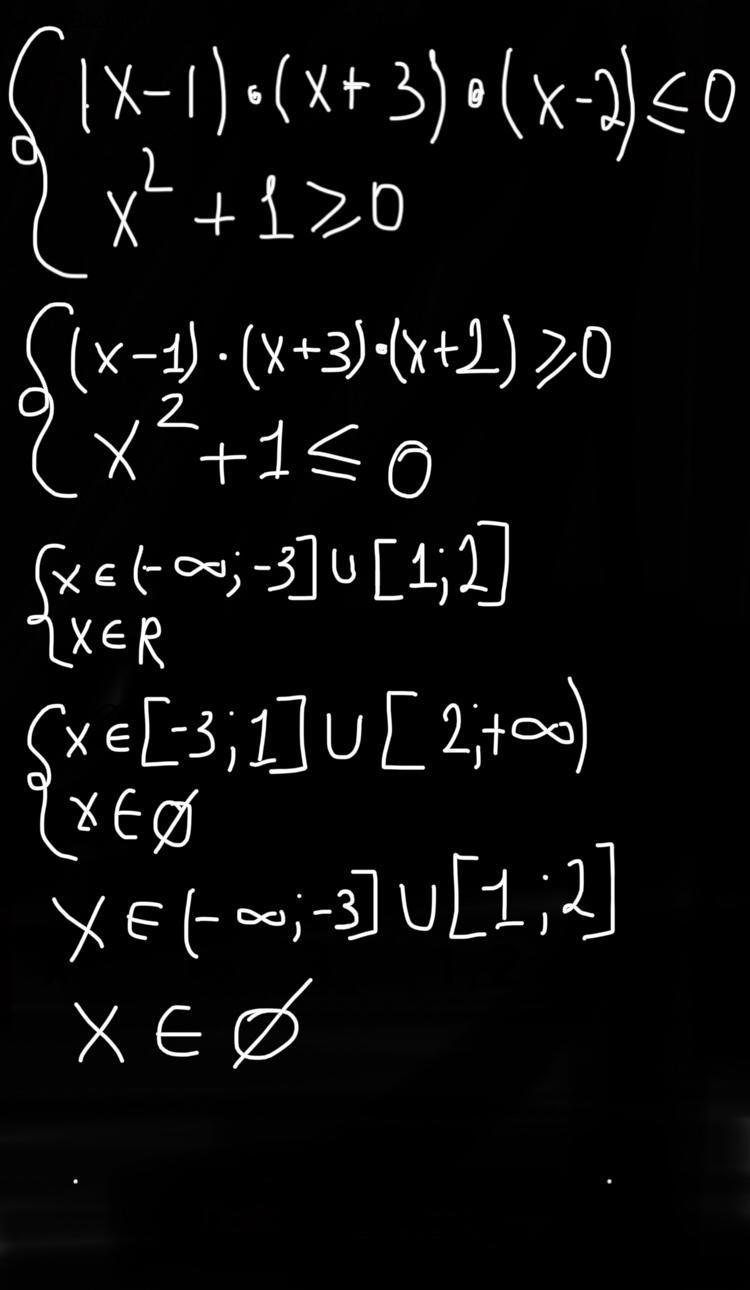 { (x-1)·(x+3)·(x-2)≤0
x²+1≥0
{ (x-1)·(x+3)·(x+2)≥0
x²+1≤0
{ x∈(-∞;-3]∪[1;2]
x∈R
{ x∈[-3;1]∪[2;+∞)
x∈∅
x∈(-∞;-3]∪[1;2]
x∈∅